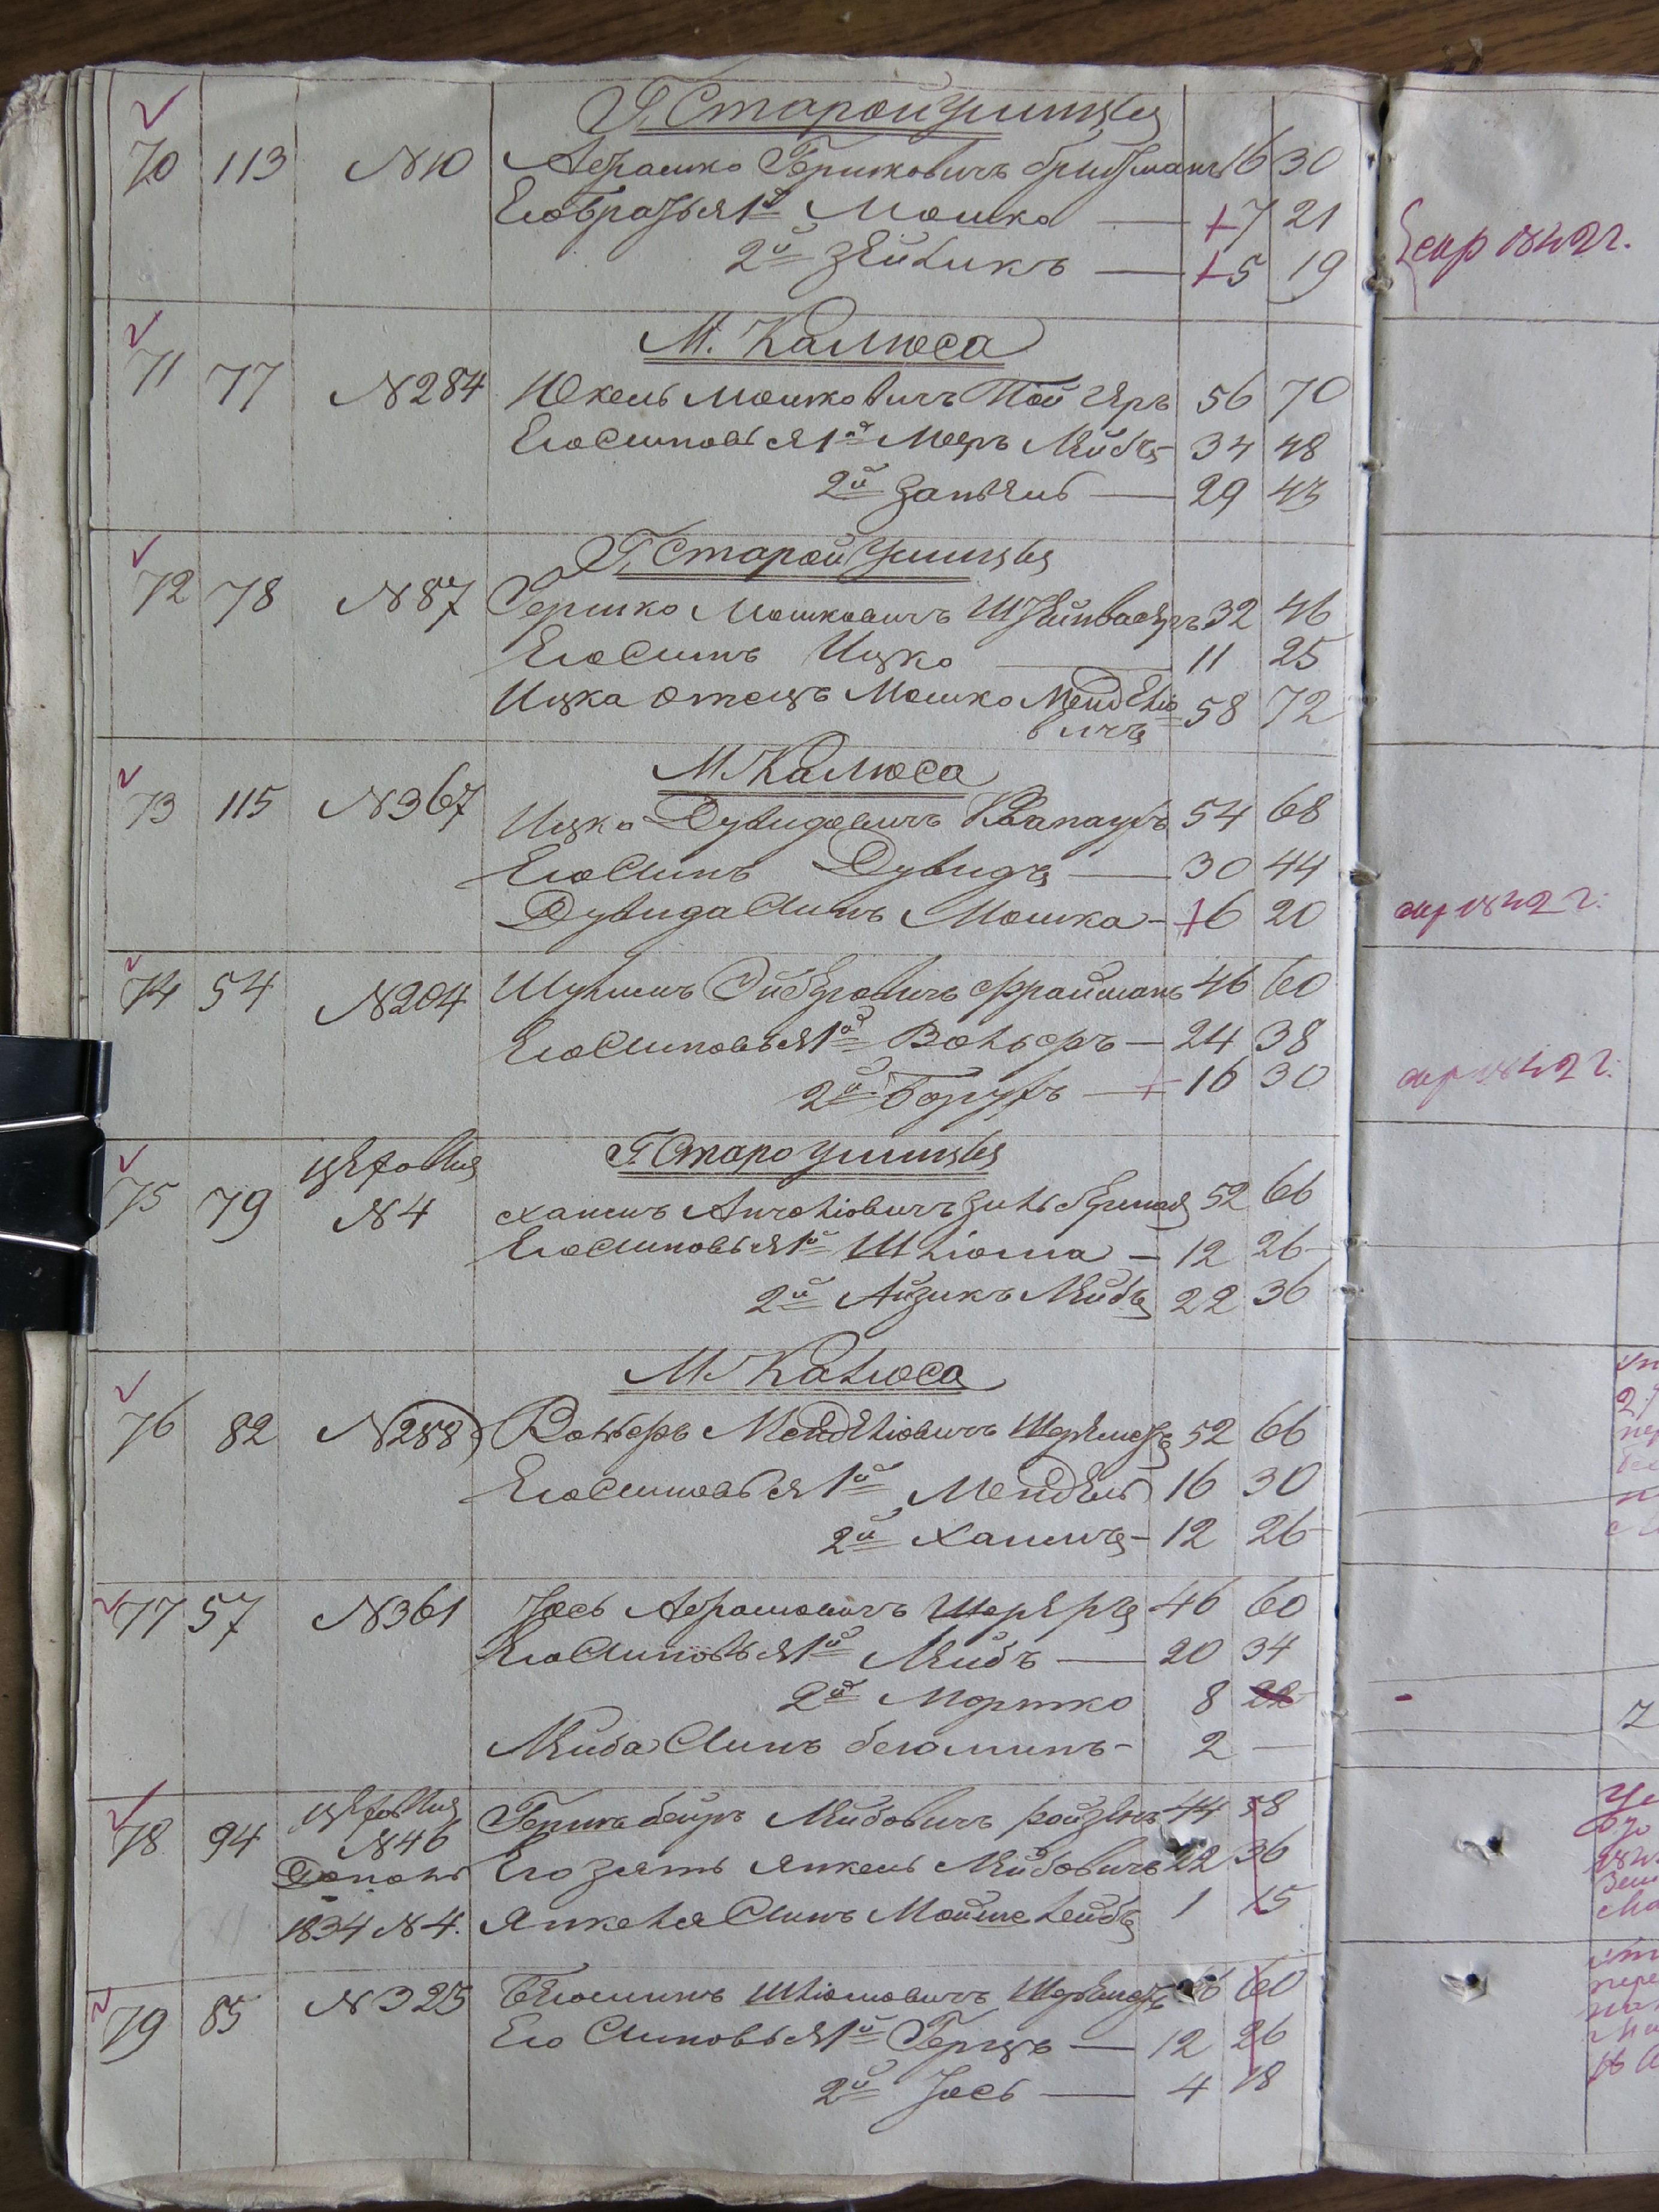 Г. Старой Ушицы
70 113 №10 Абрашко Гершковичъ Фридманъ 16 30
Его братья 1й Мошко — + 7 21
2й Зейликъ — + 5 19
М. Калюса
71 77 №284 Юкель Мошковичъ Той геръ 56 70
Его Сыновья 1й Мееръ Лейбъ 34 48
2й Занвель — 29 43
Г. Старой Ушицы
72 78 №87 Гершко Мошковичъ Штейнвасеръ 32 46
Его Сынъ Ицко — 11 25
Ицка отецъ Мошко Мендель
вичъ 58 72
М. Калюса
73 115 №367 Ицко Дувидовичъ 54 68
Его Сынъ Дувидъ — 30 44
Дувида Сынъ Мошка — + 6 20
74 54 №204 Шулимъ Фрайманъ 46 60
Его Сыновья 1й Вольферъ — 24 38
2й Борухъ — + 16 30
Г. Старо Ушицы
75 79 цеховыя
№4 Хаимъ Анчелiовичъ 52 66
Его Сыновья 1й Шлiома — 12 26
2й Айзикъ Лейбъ 22 36
М. Калюса
76 82 №288 Вольферъ Менделiовичъ 52 66
Его Сыновья 1й Мендель 16 30
2й Хаимъ — 12 26
77 57 №361 Iось Абрамовичъ 46 60
Его Сыновья 1й Лейбъ — 20 34
2й Мортко 8 22
Лейба Сынъ Бегаминъ — 2 —
78 94 цеховыя
№46 Гершъ Бейръ Лейбовичъ Ройзенъ 44 58
Допол Его зять Янкель Лейбовичъ 22 36
1834 №4. Янкеля Сынъ Мойше Лейбъ 1 15
79 85 №325 Беюминъ Шлiомовичъ 46 60
Его Сыновья 1й Герцъ — 12 26
2й Iось — 4 18
сир 1842 г.
сир 1842 г.
сир 1842 г.